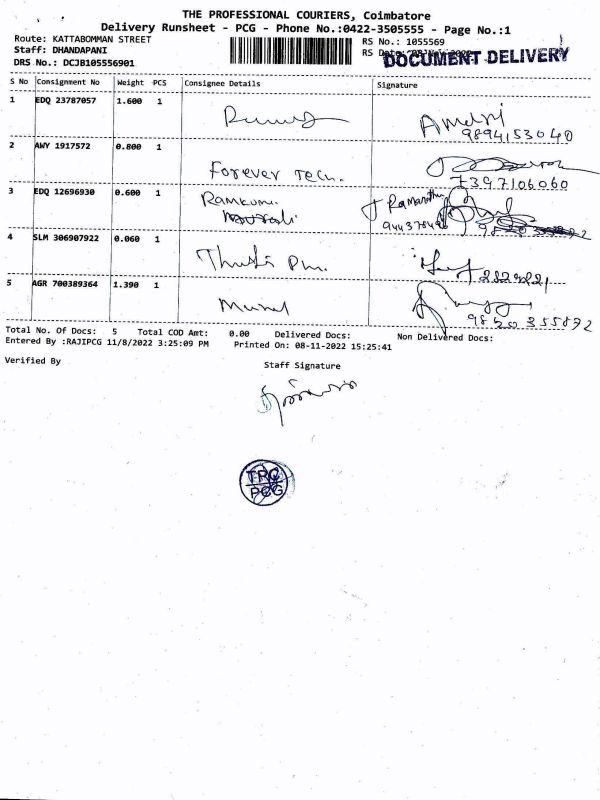 THE PROFESSIONAL COURIERS, Coimbatore
Delivery Runsheet - PCG - Phone No.:0422-3505555 - Page No.:1
Route: KATTABOMMAN STREET
RS No.: 1055569
Staff: DHANDAPANI
RS Date:
DOCUMENT DELIVERY
DRS No.: DCJB105556901
S No Consignment No Weight PCS Consignee Details Signature
1 EDQ 23787057 1.600 1
9894153040
2 AWY 1917572 0.800 1 Forever Tech.
7397106060
3 EDQ 12696930 0.600 1 Ramkumar
4 SLM 306907922 0.060 1
5 AGR 700389364 1.390 1
98420 355892
Total No. Of Docs: 5 Total COD Amt: 0.00 Delivered Docs: Non Delivered Docs:
Entered By :RAJIPCG 11/8/2022 3:25:09 PM Printed On: 08-11-2022 15:25:41
Verified By
Staff Signature
TPC
PCG